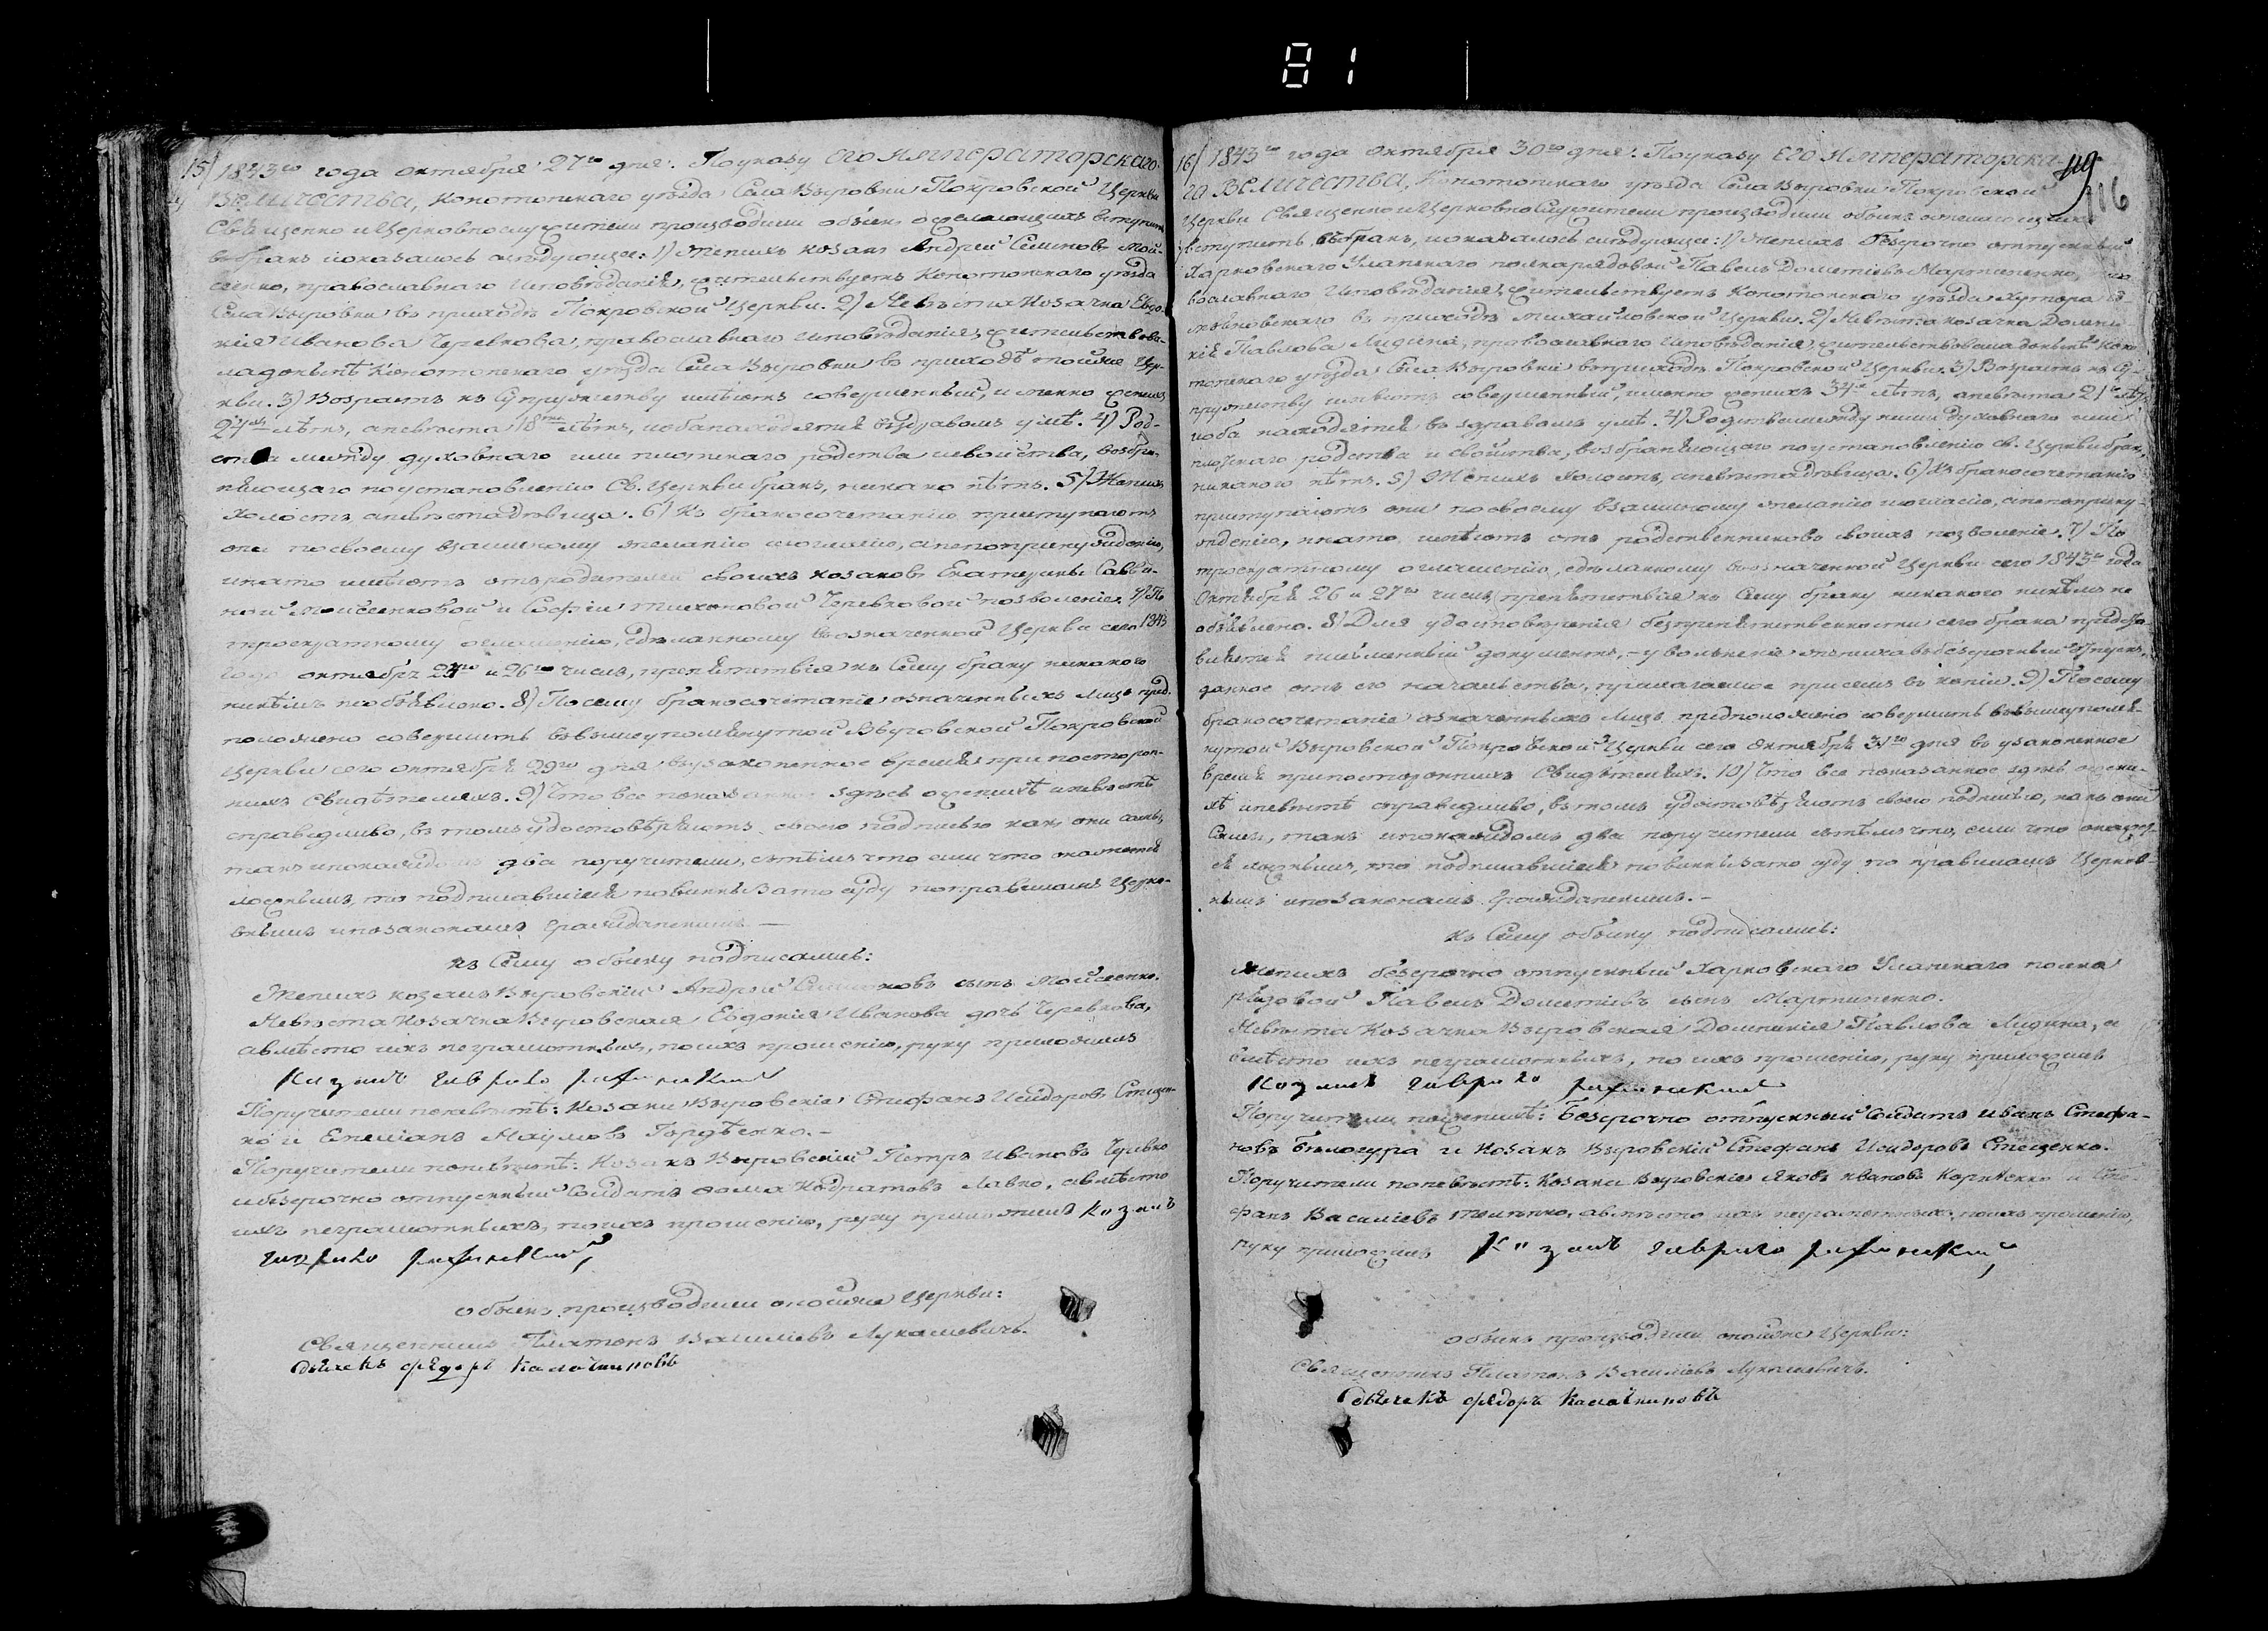 81
15/ 1843го года октября 27го дня. По указу ЕГО ИМПЕРАТОРСКАГО
ВЕЛИЧЕСТВА, Конотопскаго уѣзда Села Выровки Покровской Церкви
Священно и Церковнослужители производили обыскъ о желающихъ вступить
въ бракъ и оказалось слѣдующее: 1) Женихъ козакъ Андрей Семеновъ Мой-
сеенко, православнаго исповѣданія, жительствуетъ Конотопскаго уѣзда
Села Выровки въ приходѣ Покровской Церкви. 2) Невѣста козачка Евдо-
кія Иванова Черевкова, православнаго исповѣданія, жительствова-
ла донынѣ Конотопскаго уѣзда Села Выровки въ приходѣ тойже Цер-
кви. 3) Возрастъ къ Супружеству имѣютъ совершенный, и менно женихъ
27 лѣтъ, а невѣста 18 лѣтъ, и оба находятся въ здравомъ умѣ. 4) Род-
ства между духовнаго или плотскаго родства и свойства, возбра-
няющаго по установленію Св. Церкви бракъ, никако нѣтъ. 5) Женихъ
холостъ, а невѣста дѣвица. 6) Къ бракосочетанію приступаютъ
они по своему взаимному желанію и согласію, а не по принужденію,
и на то имѣютъ отъ родителей своихъ козаковъ Екатерины Савви-
ной Мойсеенковой и Софіи Тихоновой Черевковой позволеніе. 7) По
троекратному оглашенію, сдѣланному въ означенной Церкви сего 1843
года октября 24го и 26го числъ, препятствія къ Сему браку никакого
никѣмъ не объявлено. 8) По сему бракосочетаніе означенныхъ лицъ пред-
положено совершить въ вышеупомянутой Выровской Покровской
Церкви сего октября 29го дня въ узаконенное время при посторон-
нихъ свидѣтеляхъ. 9) Что все показанное здѣсь о женихѣ и невѣстѣ
справедливо, въ томъ удостовѣряютъ своею подписью какъ они сами,
такъ и по каждомъ два поручители, съ тѣмъ что если что окажется
ложнымъ, то подписавшіеся повинны за то суду по правиламъ Церко-
внымъ и по законамъ гражданскимъ. —
къ Сему обыску подписались:
Женихъ козакъ Выровскій Андрей Семеновъ сынъ Мойсеенко.
Невѣста козачка Выровская Евдокія Иванова дочь Черевкова,
а вмѣсто ихъ неграмотныхъ, по ихъ прошенію, руку приложилъ
Козакъ Гаврило
Поручители по женихѣ: козаки Выровскіе Стефанъ Исидоровъ Стецен-
ко и Емеліанъ Наумовъ Гордѣенко. —
Поручители по невѣстѣ: козакъ Выровскій Петръ Ивановъ Черевко
и безсрочно отпускный Солдатъ Фома Кодратовъ Лавко, а вмѣсто
ихъ неграмотныхъ, по ихъ прошенію, руку приложилъ Козакъ
Гаврило
обыскъ производили тойже Церкви:
Священникъ Платонъ Васильевъ Лукашевичъ.
дьячекъ Федоръ Калашниковъ
116
16/ 1843го года октября 30го дня. По указу ЕГО ИМПЕРАТОРСКА-
ГО ВЕЛИЧЕСТВА, Конотопскаго уѣзда Села Выровки Покровской
Церкви Священно и Церковнослужители производили обыскъ о желающихъ
вступить въ бракъ, и оказалось слѣдующее: 1) Женихъ безсрочно отпускный
Харковскаго Уланскаго полка рядовой Павелъ Дометіевъ Мартиненко, пра
вославнаго исповѣданія, жительствуетъ Конотопскаго уѣзда Хутора
въ приходѣ Михайловской Церкви. 2) Невѣста козачка Домни-
кія Павлова Лидина, православнаго исповѣданія, жительствовала донынѣ Коно-
топскаго уѣзда Села Выровки въ приходѣ Покровской Церкви. 3) Возрастъ къ Су-
пружеству имѣютъ совершенный, и менно женихъ 34 лѣтъ, а невѣста 21 лѣтъ,
и оба находятся въ здравомъ умѣ. 4) Родства между ними духовнаго или
плотскаго родства и свойства, возбраняющаго по установленію св. Церкви бракъ,
никакого нѣтъ. 5) Женихъ холостъ, а невѣста дѣвица. 6) Къ бракосочетанію
приступаютъ они по своему взаимному желанію и согласію, а не по прину-
жденію, и на то имѣютъ отъ родственниковъ своихъ позволеніе. 7) По
троекратному оглашенію, сдѣланному въ означенной Церкви сего 1843го года
Октября 26 и 27го числъ, препятствія къ Сему браку никакого никѣмъ не
объявлено. 8) Для удостовѣренія безпрепятственности сего брака предста
вляется письменный документъ, — увольненіе жениха въ безсрочный отпускъ,
данное отъ его начальства, прилагаемое при семъ въ копіи. 9) По сему
бракосочетаніе означенныхъ лицъ предположено совершить въ вышеупомя-
нутой Выровской Покровской Церкви сего октября 31го дня въ узаконенное
время при постороннихъ Свидѣтеляхъ. 10) Что все показанное здѣсь о жени-
хѣ и невѣстѣ справедливо, въ томъ удостовѣряютъ своею подписью, какъ они
Сами, такъ и по каждомъ два поручители съ тѣмъ что, если что окажет-
ся ложнымъ, то подписавшіеся повинны за то суду по правиламъ Церков-
нымъ и по законамъ Гражданскимъ. —
къ Сему обыску подписались:
Женихъ безсрочно отпускный Харковскаго Уланскаго полка
рядовой Павелъ Дометіевъ сынъ Мартиненко.
Невѣста Козачка Выровская Домникія Павлова Лидина, а
вмѣсто ихъ неграмотныхъ, по ихъ прошенію, руку приложилъ
Козакъ Гаврило
Поручители по женихѣ: Безсрочно отпускный Солдатъ Иванъ Стефа-
новъ Бѣлогура и козакъ Выровскій Стефанъ Исидоровъ Стеценко.
Поручители по невѣстѣ: Козаки Выровскіе Яковъ Ивановъ Корнѣенко и Сте-
фанъ Василіевъ а вмѣсто ихъ неграмотныхъ, по ихъ прошенію,
руку приложилъ Козакъ Гаврило
обыскъ производили тойже Церкви:
Священникъ Платонъ Васильевъ Лукашевичъ.
дьячекъ Федоръ Калашниковъ